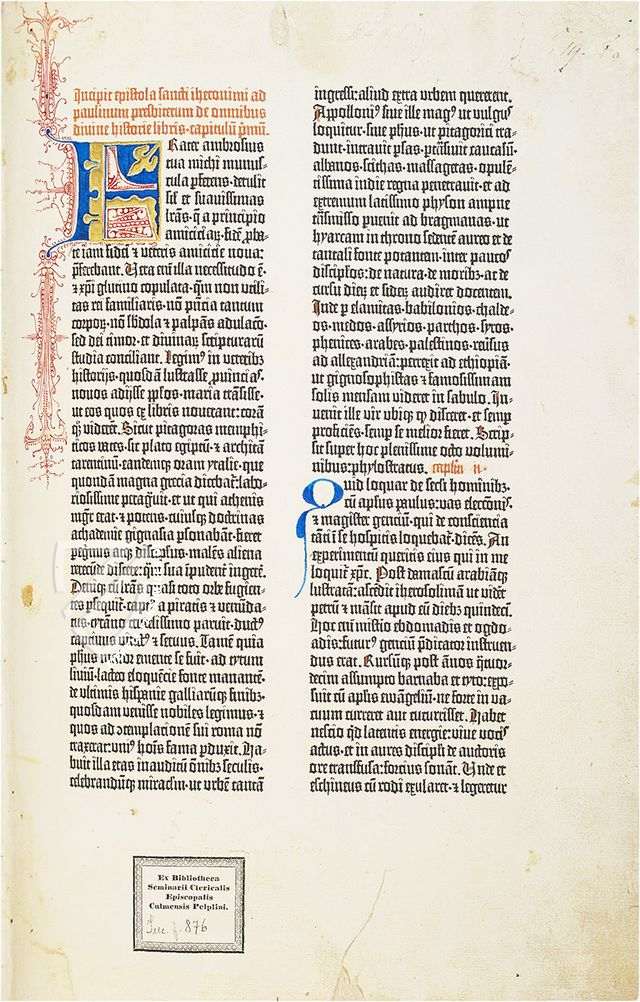 Incipit epistola sancti iheronimi ad
paulinum presbiterum de omnibus
divine historie libris·capitulū p̄mū.
Frater ambrosius
tua michi munus-
cula pferens·detulit
sil et suavissimas
lrās·q̄ a principio
amiciciaꝝ·fidē pba-
te iam fidei ⁊ veteris amicicie nova:
pferebant. Vera eni illa necessitudo ē·
⁊ xpi glutino copulata·qm̄ non utili-
tas rei familiaris·nō pn̄cia tantum
corpoꝝ·nō sbdola ⁊ palpās adulacō·
sed dei timor·et divinaꝝ scripturarū
studia conciliant. Legimꝰ in veteribꝫ
historijs·quosdā lustrasse puincias·
novos adijsse pplos·maria trāsisse·
ut eos quos ex libris noverant: corā
qꝫ viderēt. Sicut pitagoras memphi-
ticos vates·sic plato egiptū·⁊ architā
tarentinū·eandemqꝫ oram ytalie·que
quondā magna grecia dicebat̄: labo-
riosissime pagvit·et ut qui athenis
mgr̄ erat·⁊ potens·cuiusqꝫ doctrinas
achademie gignasia psonabāt·fieret
peginus atqꝫ discipulus·malēs aliena
verecūde discere: qm̄ sua ipudent̄ ingere̅.
Deniqꝫ cū lrās quasi toto orbe fugien-
tes psequit̄·captꝰ a piratis ⁊ venūda-
tus·tyrāno crudelissimo paruit·ductꝰ
captivus vinctꝰ ⁊ servus. Tamē quia
phus maior emente se fuit·ad tytum
liviū·lacteo eloquēcie fonte manantē·
de ultimis hispanie galliarūqꝫ finibꝫ·
quosdam venisse nobiles legimus·⁊
quos ad ꝯtemplacionē sui roma nō
traxerat: unīꝰ hoīs fama pduxit. Ha-
buit illa etas inauditū oīnibꝫ seculis·
celebrandūqꝫ miraculū·ut urbē tantā
ingressi: aliud extra urbem quererent.
Appolloniꝰ sive ille magꝰ ut vulgus
loquitur·sive phus·ut pitagorici tra-
dunt·intravit psas·ptrāsivit caucasū·
albanos·scithas·massagetas·opulē-
tissima indie regna penetravit·et ad
extremum latissimo physon ampne
trāsmisso puenit ad bragmanas·ut
hyarcam in throno sedentē aureo et de
tantali fonte potantem·inter paucos
discipulos·de natura·de moribꝫ·ac de
cursu dieꝝ et sideꝝ audiret docentem.
Inde p elamitas·babilonios·chalde-
os·medos·assyrios·parthos·syros·
phenices·arabes·palestinos·reversus
ad allexandriā: perrexit ad ethiopiā·
ut gignosophistas ⁊ famosissimam
solis mensam videret in sabulo. In-
venit ille vir ubiqꝫ qd̄ disceret·et semp
proficiēs·semp se melior fieret. Scrip-
sit super hoc plenissime octo volumi-
nibus: phylostratus. caplm ii·
Quid loquar de seculi hominibꝫ·
cū apłus paulus: vas elecconis·
⁊ magister genciū·qui de consciencia
tāti ī se hospitis loquebat̄·dicēs. An
experimentū queritis eius qui in me
loquit̄ xpc. Post damascū arabiāqꝫ
lustratā: ascēdit iherosolimā ut vidēt
petrū ⁊ māsit apud eū diebꝫ quindeci.
Hoc eni misterio ebdomadis et ogdo-
adis: futurꝰ genciū pdicator instruen-
dus erat. Rursūqꝫ post ānos ꝗtuor-
decim assumpto barnaba et tyto: expo-
suit cū apłis ewāgeliū·ne forte in va-
cuum curreret aut cucurrisset. Habet
nescio qd̄ latentis energie: vive vocis
actus·et in aures discipli de auctoris
ore transfusa: forcius sonat. Unde et
eschineus cū rodi exularet·⁊ legeretur
Ex Bibliotheca
Seminarii Clericalis
Episcopalis
Culmensis Pelplini.
876